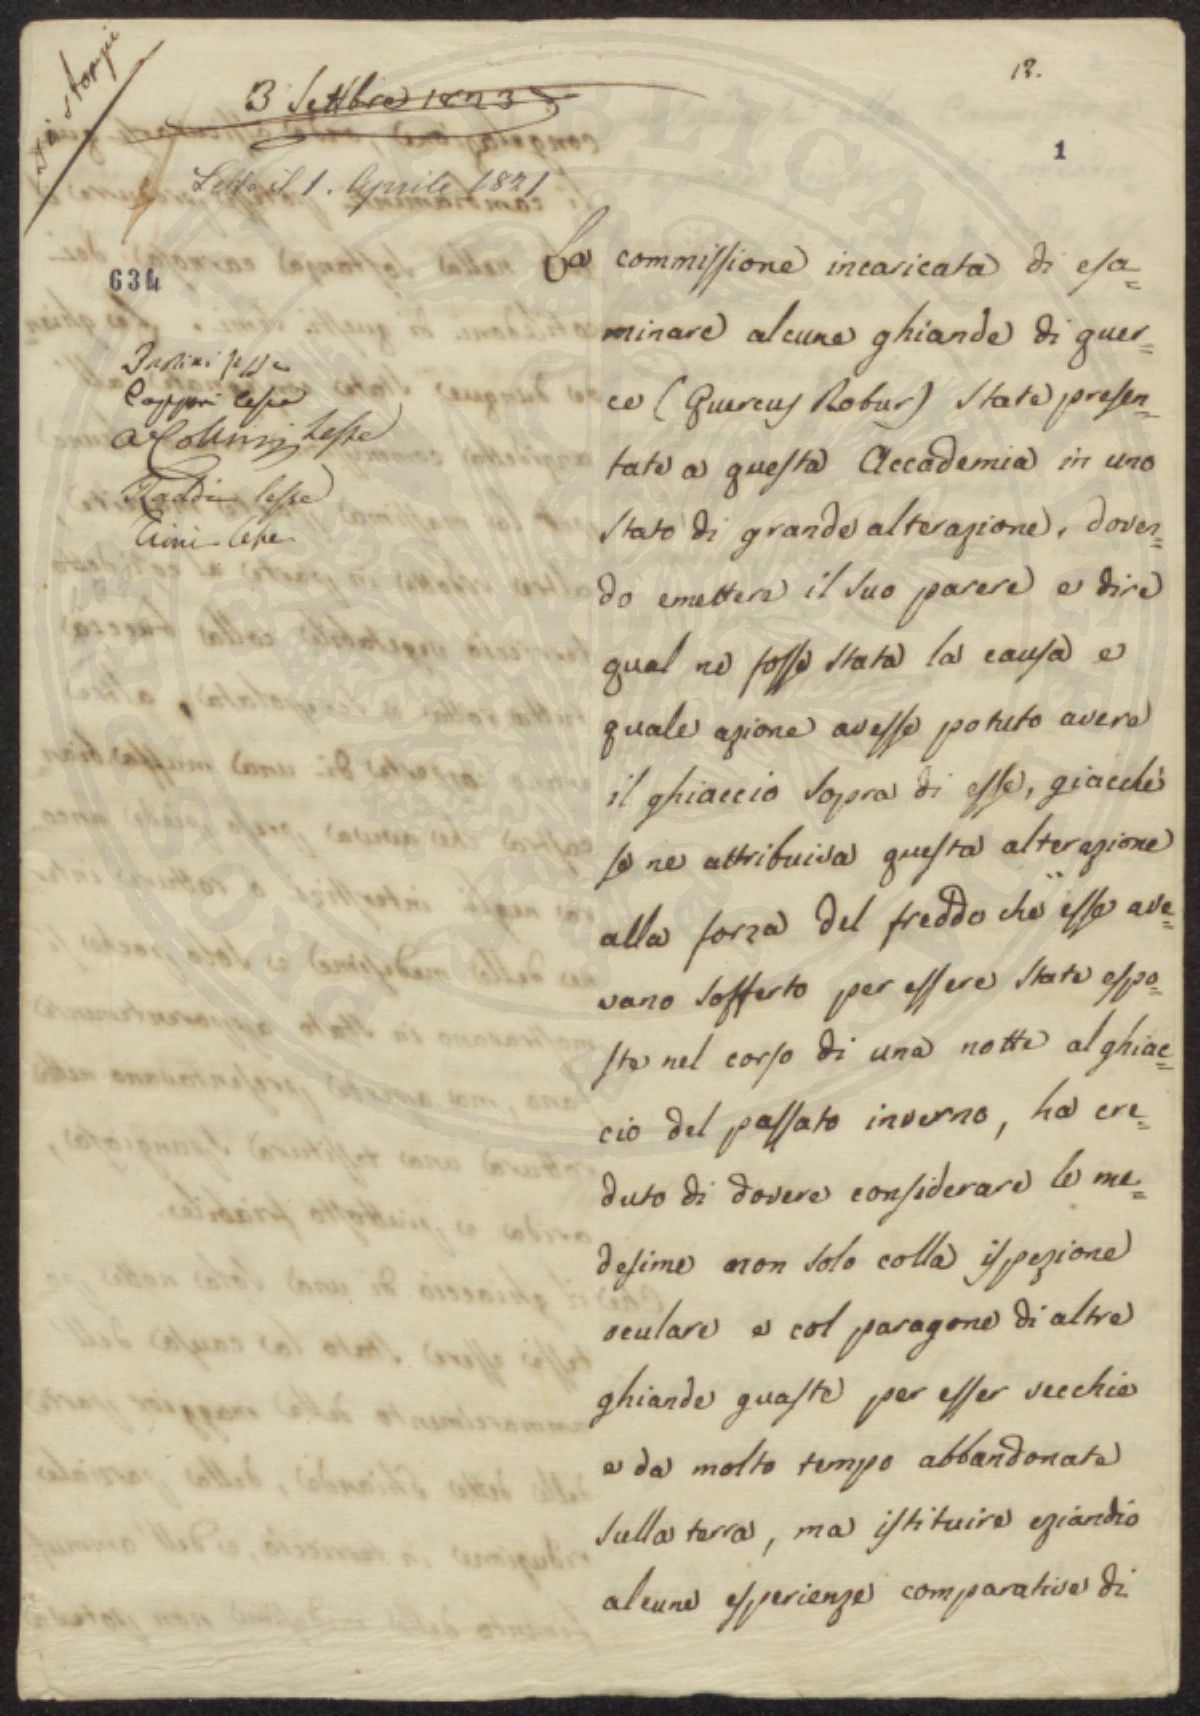 12.
1
3 Settbre 1823
Letto il 1. Aprile 1821
634
lesse
Cappori lesse
lesse
Raddi lesse
lesse
La commissione incaricata di esa=
minare alcune ghiande di quer=
ce (Quercus Robur) State presen=
tate a questa Accademia in uno
Stato di grande alterazione, doven=
do emettere il suo parere e dire
qual ne fosse stata la causa e
quale azione avesse potuto avere
il ghiaccio sopra di esse, giacché
se ne attribuiva questa alterazione
alla forza del freddo che esse ave=
vano sofferto per essere state espo=
ste nel corso di una notte al ghiac=
cio del passato inverno, ha cre=
duto di dovere considerare le me=
desime non solo colla ispezione
oculare e col paragone di altre
ghiande guaste per esser vecchie
e da molto tempo abbandonate
sulla terra, ma istituire eziandio
alcune esperienze comparative di